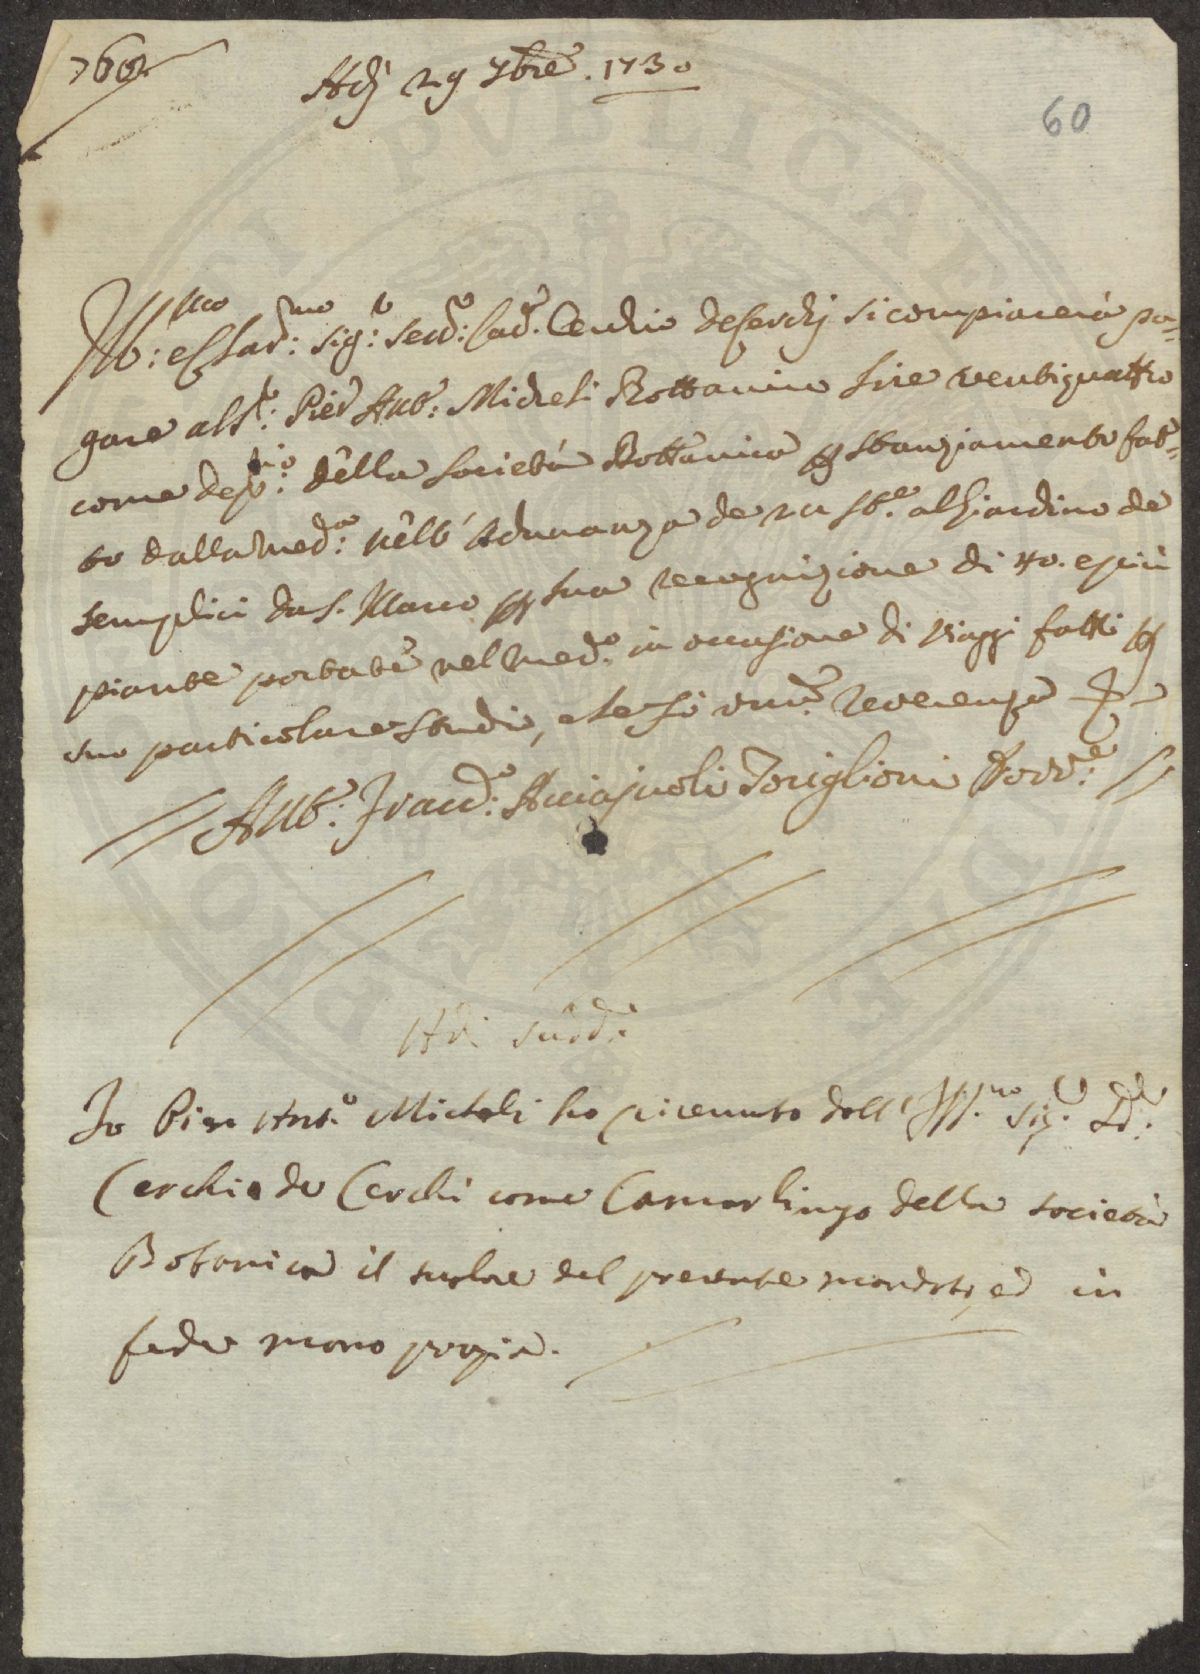 Adì 29 7bre. 1730
60
Ill:mo e Clar:mo Sig:r Sen:re Cerchio de Cerchj si compiacerà pa=
gare al S:r Pier Ant:o Micheli Bottanico Lire ventiquattro
come dep:rio della Società Bottanica p stanziamento fat=
to dalla med:a nell' Adunanza de 24 st.e al Giardino de
semplici da S. Marco p sua recognizione di 40. e più
piante portate nel med:o in occasione di viaggi fatti p
suo particolare studio, e le fò um:a reverenza
Ant:o Franc:o Acciajuoli Toriglioni Provv:e
Adì sud:o
Io Pier Ant.o Micheli ho ricevuto dall' Ill.mo Sig.r
Cerchio de Cerchi come Camarlingo della società
Botanica il valore del presente mandato, ed in
fede mano propia.